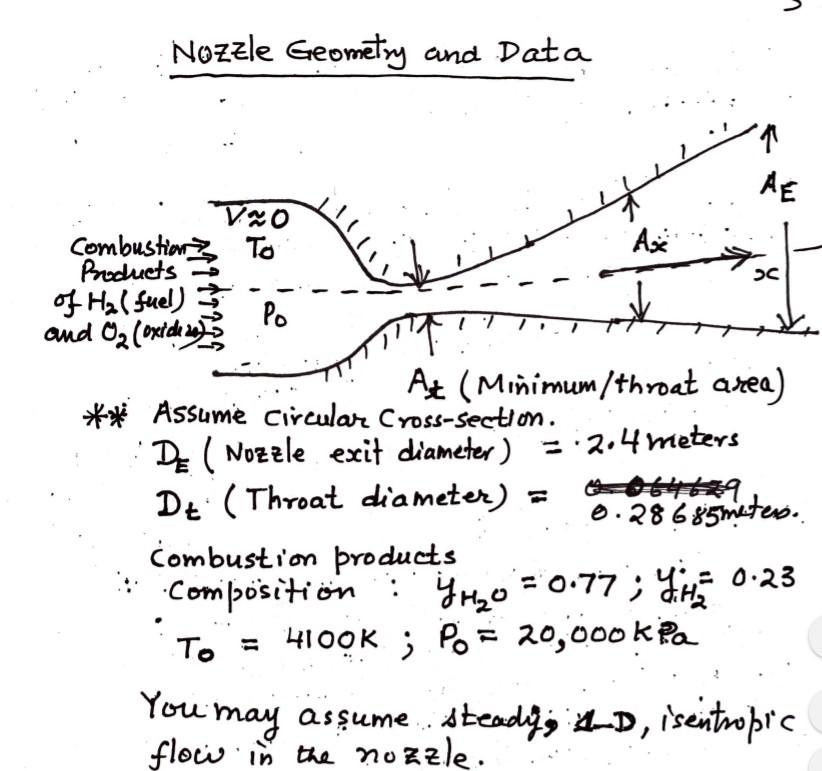 Nozzle Geometry and Data
V≈0
Combustion
To
Products
of H₂ (fuel)
Po
and O₂ (oxidizer)
AE
Ax
x
At (Minimum/throat area)
** Assume circular Cross-section.
DE (Nozzle exit diameter) = 2.4 meters
Dt (Throat diameter) =
0.28685meters.
Combustion products
Composition : yH₂O = 0.77 ; yH₂ = 0.23
To = 4100K ; Po = 20,000 kPa
You may assume steady, 1-D, isentropic
flow in the nozzle.